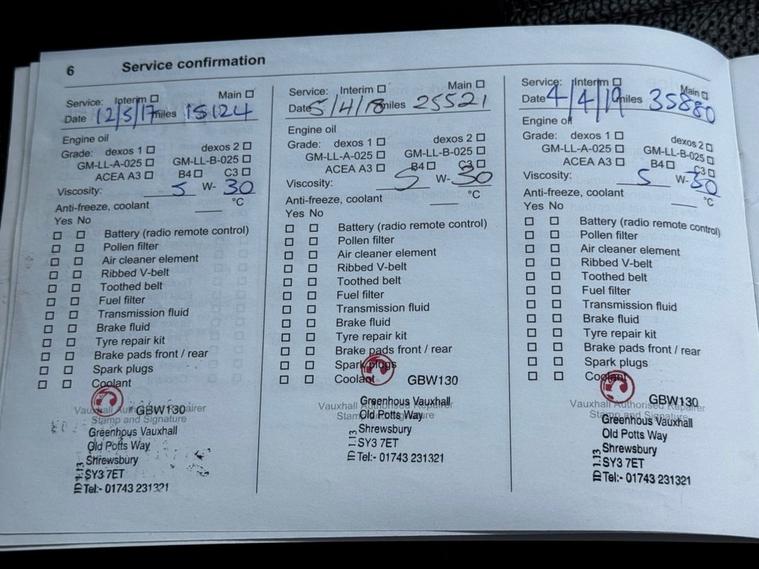 6 Service confirmation
Service: Interim ☐ Main ☐
Date 12/5/17 miles 15124
Engine oil
Grade: dexos 1 ☐ dexos 2 ☐
GM-LL-A-025 ☐ GM-LL-B-025 ☐
ACEA A3 ☐ B4 ☐ C3 ☐
Viscosity: 5 W- 30
Anti-freeze, coolant ___ °C
Yes No
☐ ☐ Battery (radio remote control)
☐ ☐ Pollen filter
☐ ☐ Air cleaner element
☐ ☐ Ribbed V-belt
☐ ☐ Toothed belt
☐ ☐ Fuel filter
☐ ☐ Transmission fluid
☐ ☐ Brake fluid
☐ ☐ Tyre repair kit
☐ ☐ Brake pads front / rear
☐ ☐ Spark plugs
☐ ☐ Coolant
GBW130
Vauxhall Authorised Repairer
Stamp and Signature
Greenhous Vauxhall
Old Potts Way
Shrewsbury
SY3 7ET
Tel:- 01743 231321
ID 1.13
Service: Interim ☐ Main ☐
Date 5/4/18 miles 25521
Engine oil
Grade: dexos 1 ☐ dexos 2 ☐
GM-LL-A-025 ☐ GM-LL-B-025 ☐
ACEA A3 ☐ B4 ☐ C3 ☐
Viscosity: 5 W- 30
Anti-freeze, coolant ___ °C
Yes No
☐ ☐ Battery (radio remote control)
☐ ☐ Pollen filter
☐ ☐ Air cleaner element
☐ ☐ Ribbed V-belt
☐ ☐ Toothed belt
☐ ☐ Fuel filter
☐ ☐ Transmission fluid
☐ ☐ Brake fluid
☐ ☐ Tyre repair kit
☐ ☐ Brake pads front / rear
☐ ☐ Spark plugs
☐ ☐ Coolant
GBW130
Vauxhall Authorised Repairer
Stamp and Signature
Greenhous Vauxhall
Old Potts Way
Shrewsbury
SY3 7ET
Tel:- 01743 231321
ID 1.13
Service: Interim ☐ Main ☐
Date 4/4/19 miles 35880
Engine oil
Grade: dexos 1 ☐ dexos 2 ☐
GM-LL-A-025 ☐ GM-LL-B-025 ☐
ACEA A3 ☐ B4 ☐ C3 ☐
Viscosity: 5 W- 30
Anti-freeze, coolant ___ °C
Yes No
☐ ☐ Battery (radio remote control)
☐ ☐ Pollen filter
☐ ☐ Air cleaner element
☐ ☐ Ribbed V-belt
☐ ☐ Toothed belt
☐ ☐ Fuel filter
☐ ☐ Transmission fluid
☐ ☐ Brake fluid
☐ ☐ Tyre repair kit
☐ ☐ Brake pads front / rear
☐ ☐ Spark plugs
☐ ☐ Coolant
GBW130
Vauxhall Authorised Repairer
Stamp and Signature
Greenhous Vauxhall
Old Potts Way
Shrewsbury
SY3 7ET
Tel:- 01743 231321
ID 1.13